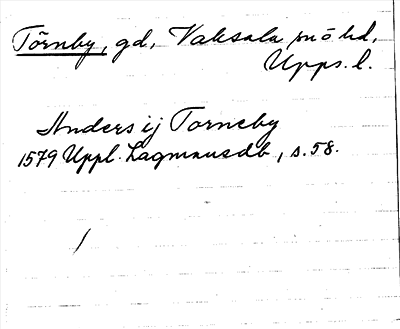 Törnby, gd, Vaksala sn o hd,
Upps. l.
Anders ij Torneby
1579 Uppl. Lagmansdb, s. 58.
/